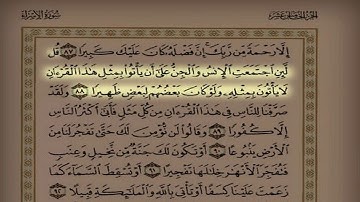 الجزء الخامس عشر سورة الإسراء
إِلَّا رَحْمَةً مِّن رَّبِّكَ إِنَّ فَضْلَهُ كَانَ عَلَيْكَ كَبِيرًا ٨٧ قُل
لَّئِنِ اجْتَمَعَتِ الْإِنسُ وَالْجِنُّ عَلَىٰ أَن يَأْتُوا بِمِثْلِ هَٰذَا الْقُرْءَانِ
لَا يَأْتُونَ بِمِثْلِهِ وَلَوْ كَانَ بَعْضُهُمْ لِبَعْضٍ ظَهِيرًا ٨٨ وَلَقَدْ
صَرَّفْنَا لِلنَّاسِ فِي هَٰذَا الْقُرْءَانِ مِن كُلِّ مَثَلٍ فَأَبَىٰ أَكْثَرُ النَّاسِ
إِلَّا كُفُورًا ٨٩ وَقَالُوا لَن نُّؤْمِنَ لَكَ حَتَّىٰ تَفْجُرَ لَنَا مِنَ
الْأَرْضِ يَنبُوعًا ٩٠ أَوْ تَكُونَ لَكَ جَنَّةٌ مِّن نَّخِيلٍ وَعِنَبٍ
فَتُفَجِّرَ الْأَنْهَٰرَ خِلَٰلَهَا تَفْجِيرًا ٩١ أَوْ تُسْقِطَ السَّمَاءَ كَمَا
زَعَمْتَ عَلَيْنَا كِسَفًا أَوْ تَأْتِيَ بِاللَّهِ وَالْمَلَٰئِكَةِ قَبِيلًا ٩٢